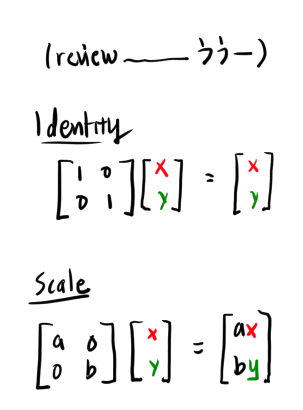 (review ______ うう—)
Identity
[1 0
0 1] [x
y] = [x
y]
Scale
[a 0
0 b] [x
y] = [ax
by]